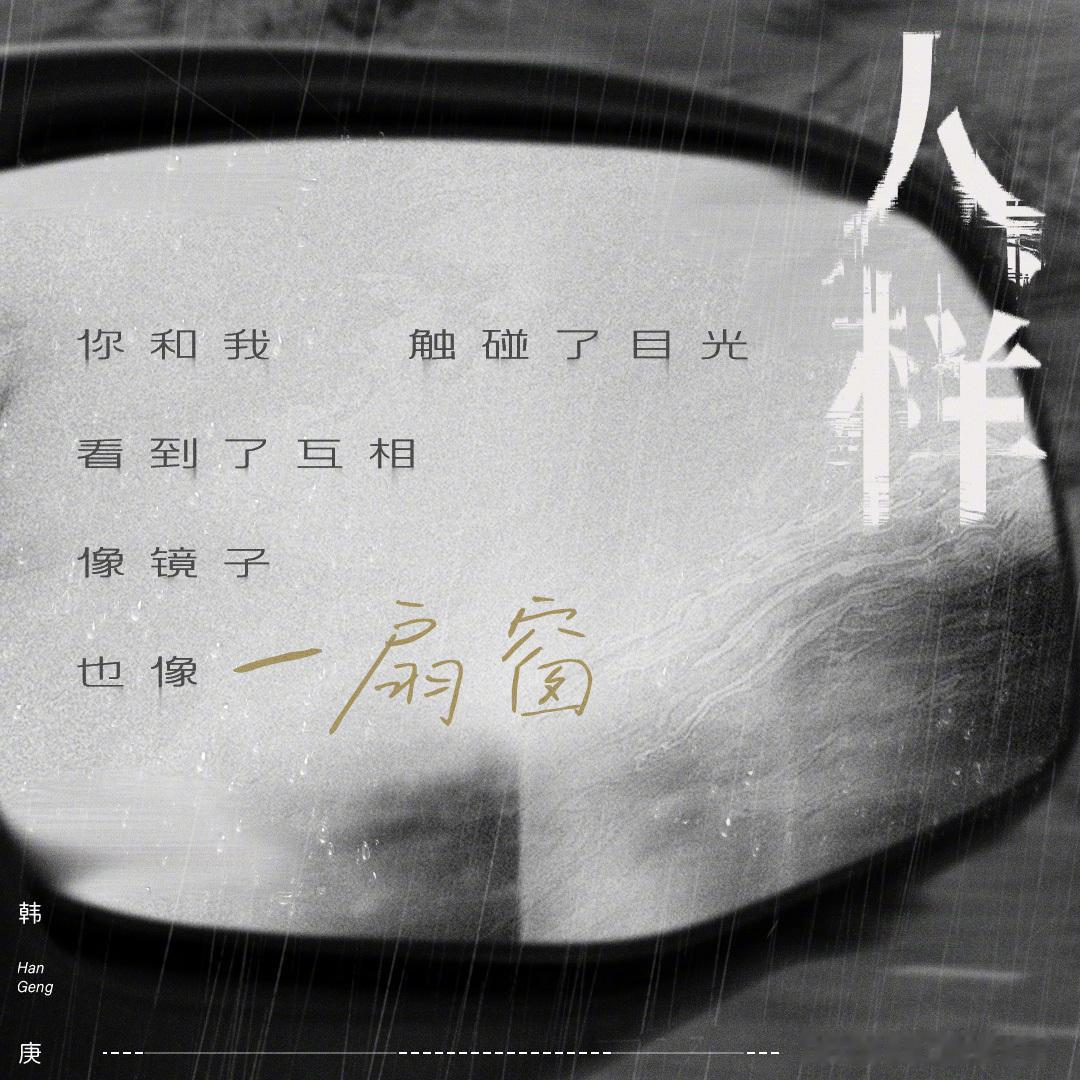 人样
你和我 触碰了目光
看到了互相
像镜子
也像一扇窗
韩
Han
Geng
庚